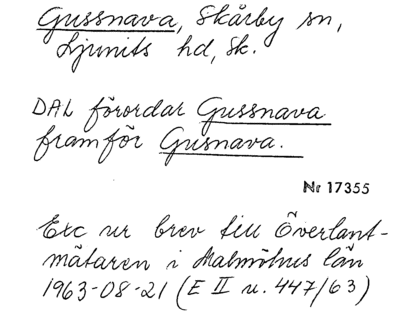 Gussnava, Skårby sn,
Ljunits hd, Sk.
DAL förordar Gussnava
framför Gusnava.
Nr 17355
Exc ur brev till Överlant-
mätaren i Malmöhus län
1963-08-21 (E II u. 447/63)